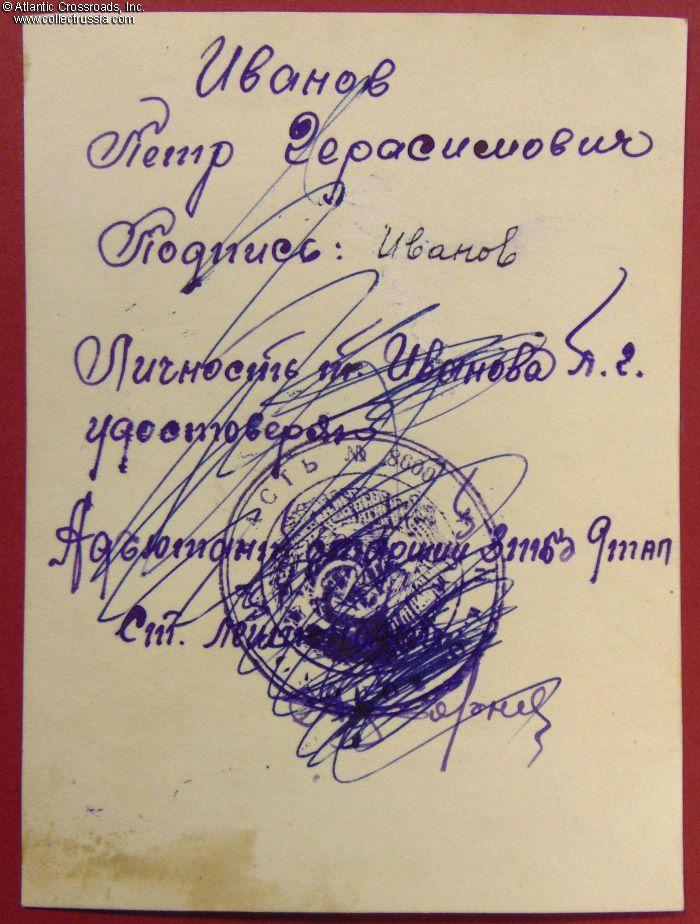 © Atlantic Crossroads, Inc.
www.collectrussia.com
Иванов
Петр Герасимович
Подпись: Иванов
Личность т. Иванова П. Г.
удостоверяю
Адъютант старший 3тбб 9тап
Ст. лейтенант
ЧАСТЬ № 18600